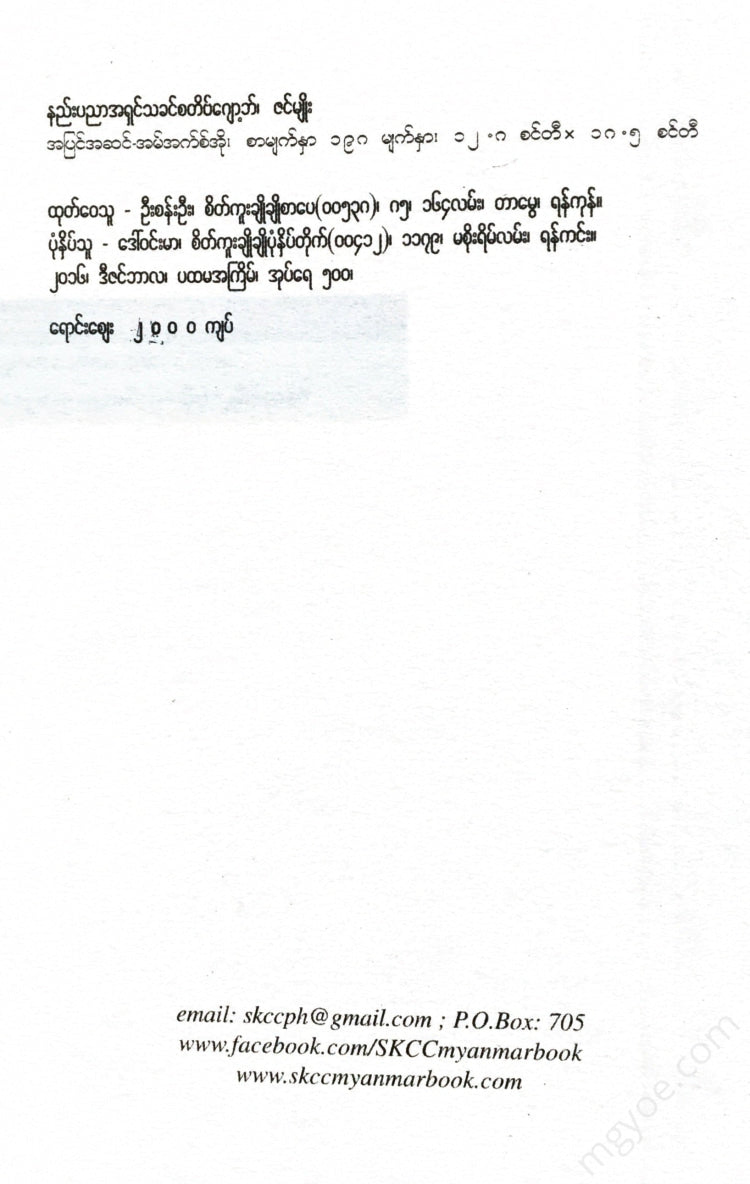 နည်းပညာအရှင်သခင်စတိဗ်ဂျော့ဘ်၊ ဇင်မျိုး
အပြင်အဆင်-အမ်အက်စ်အို၊ စာမျက်နှာ ၁၉ဂ မျက်နှာ၊ ၁၂ ·ဂ စင်တီ× ၁ဂ ·၅ စင်တီ
ထုတ်ဝေသူ - ဦးစန်းဦး၊ စိတ်ကူးချိုချိုစာပေ(၀၀၅၃ဂ)၊ ဂ၅၊ ၁၆၄လမ်း၊ တာမွေ၊ ရန်ကုန်။
ပုံနှိပ်သူ - ဒေါ်ဝင်းမာ၊ စိတ်ကူးချိုချိုပုံနှိပ်တိုက်(၀၀၄၁၂)၊ ၁၁၇၉၊ မစိုးရိမ်လမ်း၊ ရန်ကင်း။
၂၀၁၆၊ ဒီဇင်ဘာလ၊ ပထမအကြိမ်၊ အုပ်ရေ ၅၀၀၊
ရောင်းဈေး ၂ ၀ ၀ ၀ ကျပ်
email: skccph@gmail.com ; P.O.Box: 705
www.facebook.com/SKCCmyanmarbook
www.skccmyanmarbook.com
mgyoe.com